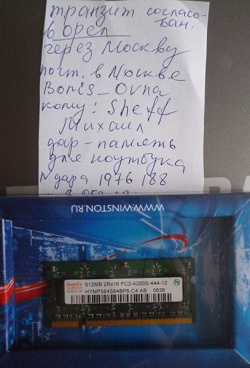 транзит согласо-
ван.
в орел
через Москву
пост. в Москве
Bonis-Ovna
кому: Sheff
Михаил
дар-память
для ноутбука
N дара 1976188
WWW.WINSTON.RU
hynix
512MB 2Rx16 PC2-4200S-444-12
HYMP564S64BP6-C4 AB 0636